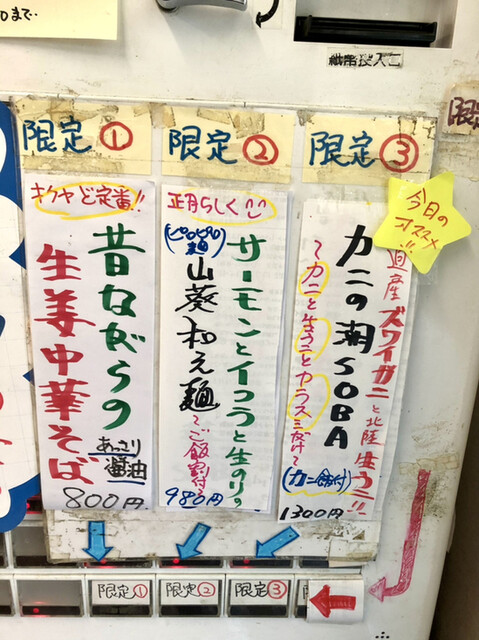 0まで..
紙幣投入口
限定①
限定②
限定③
限定
キクヤど定番!!
昔ながらの
生姜中華そば
あっさり
醤油
800円
正月らしく
サーモンとイクラと生のりの
(ピロピロ麺)山葵和え麺
〜ご飯割付〜
980円
今日の
オススメ!!
道産ズワイガニと北陸生うに!!
カニの潮SOBA
〜カニと生うにとカラスミがけ〜
(カニ飯付)
1300円
限定①
限定②
限定③